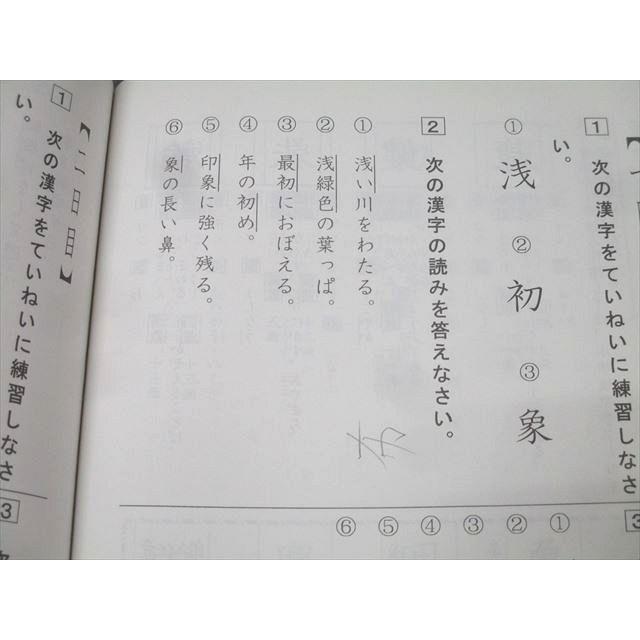 1 次の漢字をていねいに練習しなさ
い。
① 浅 ② 初 ③ 象
2 次の漢字の読みを答えなさい。
① 浅い川をわたる。
② 浅緑色の葉っぱ。
③ 最初におぼえる。
④ 年の初め。
⑤ 印象に強く残る。
⑥ 象の長い鼻。
3
①
②
③
④
⑤
⑥
【二日目】
1 次の漢字をていねいに練習しなさ
い。
3